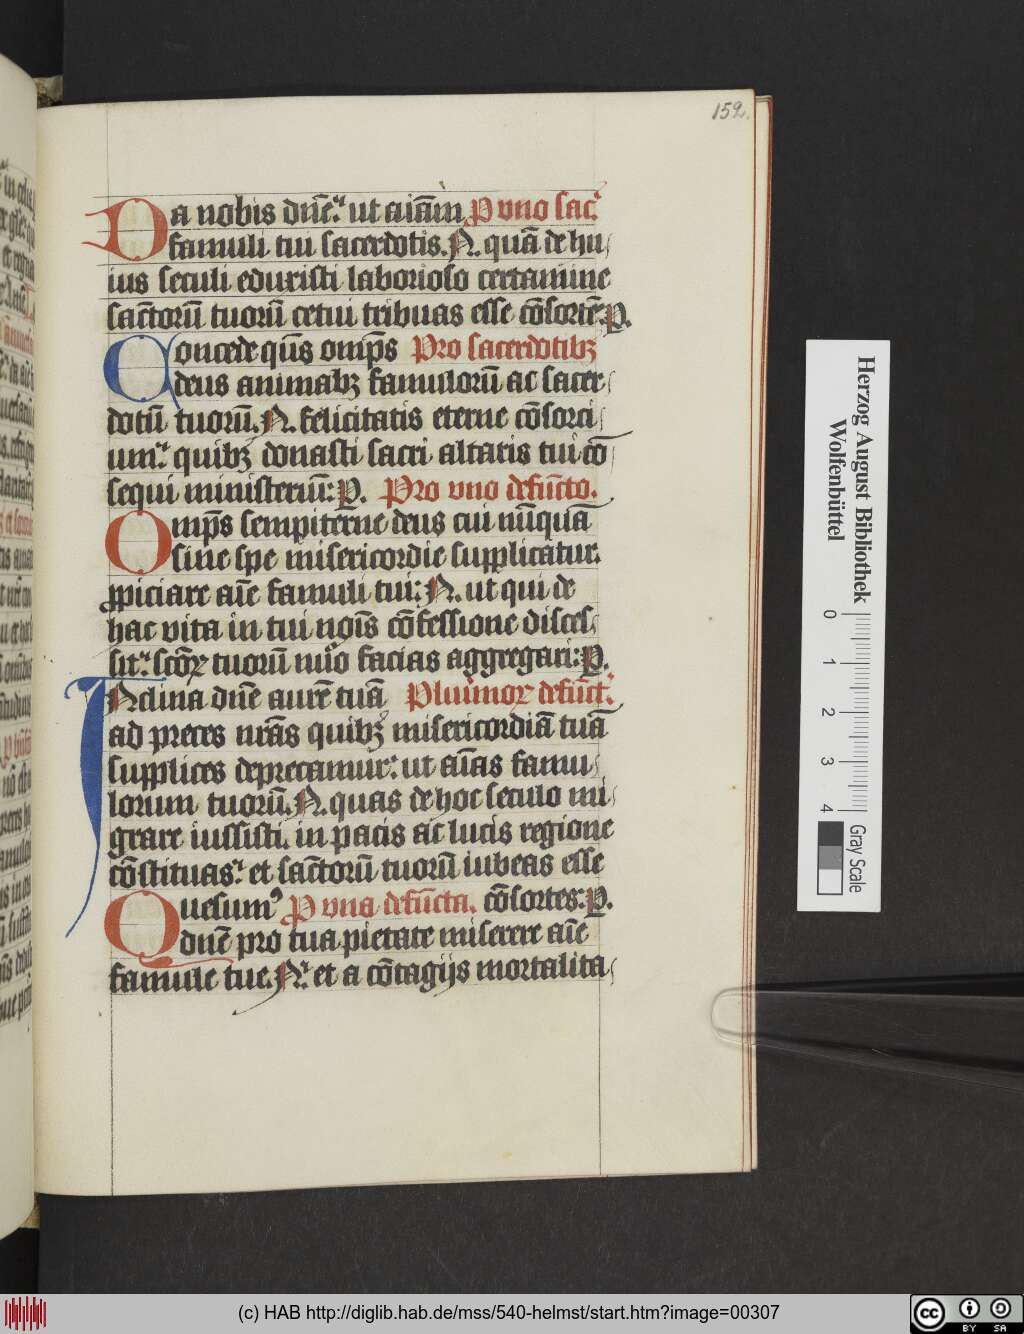 152.
Da nobis dn̄e. ut aīam ꝑ uno sac̄.
famuli tui sacerdotis. N. quā de hu
ius seculi eduxisti laborioso certamine
sāctorū tuorū cetui tribuas esse cōsortē: P.
Concede q̄s om̄ps Pro sacerdotibꝫ
deus animabꝫ famulorū ac sacer
dotū tuorū. N. felicitatis eterne cōsorci
um. quibꝫ donasti sacri altaris tui cō
sequi ministeriū: P. Pro uno defūcto.
Om̄ps sempiterne deus cui nūquā
sine spe misericordie supplicatur.
ꝓpiciare aīe famuli tui: N. ut qui de
hac vita in tui noīs cōfessione disces
sit. scōꝝ tuorū nūo facias aggregari: P.
Inclina dn̄e aurē tuā Plurimoꝝ defūct.
ad preces nr̄as quibꝫ misericordiā tuā
supplices deprecamur. ut aīas famu
lorum tuorū. N. quas de hoc seculo mi
grare iussisti. in pacis ac lucis regione
cōstituas. et sāctorū tuorū iubeas esse
Quesumꝰ ꝑ una defūcta. cōsortes: P.
dn̄e pro tua pietate miserere aīe
famule tue. N. et a cōtagijs mortalita
Herzog August Bibliothek
Wolfenbüttel
0 1 2 3 4
Gray Scale
(c) HAB http://diglib.hab.de/mss/540-helmst/start.htm?image=00307
cc BY SA